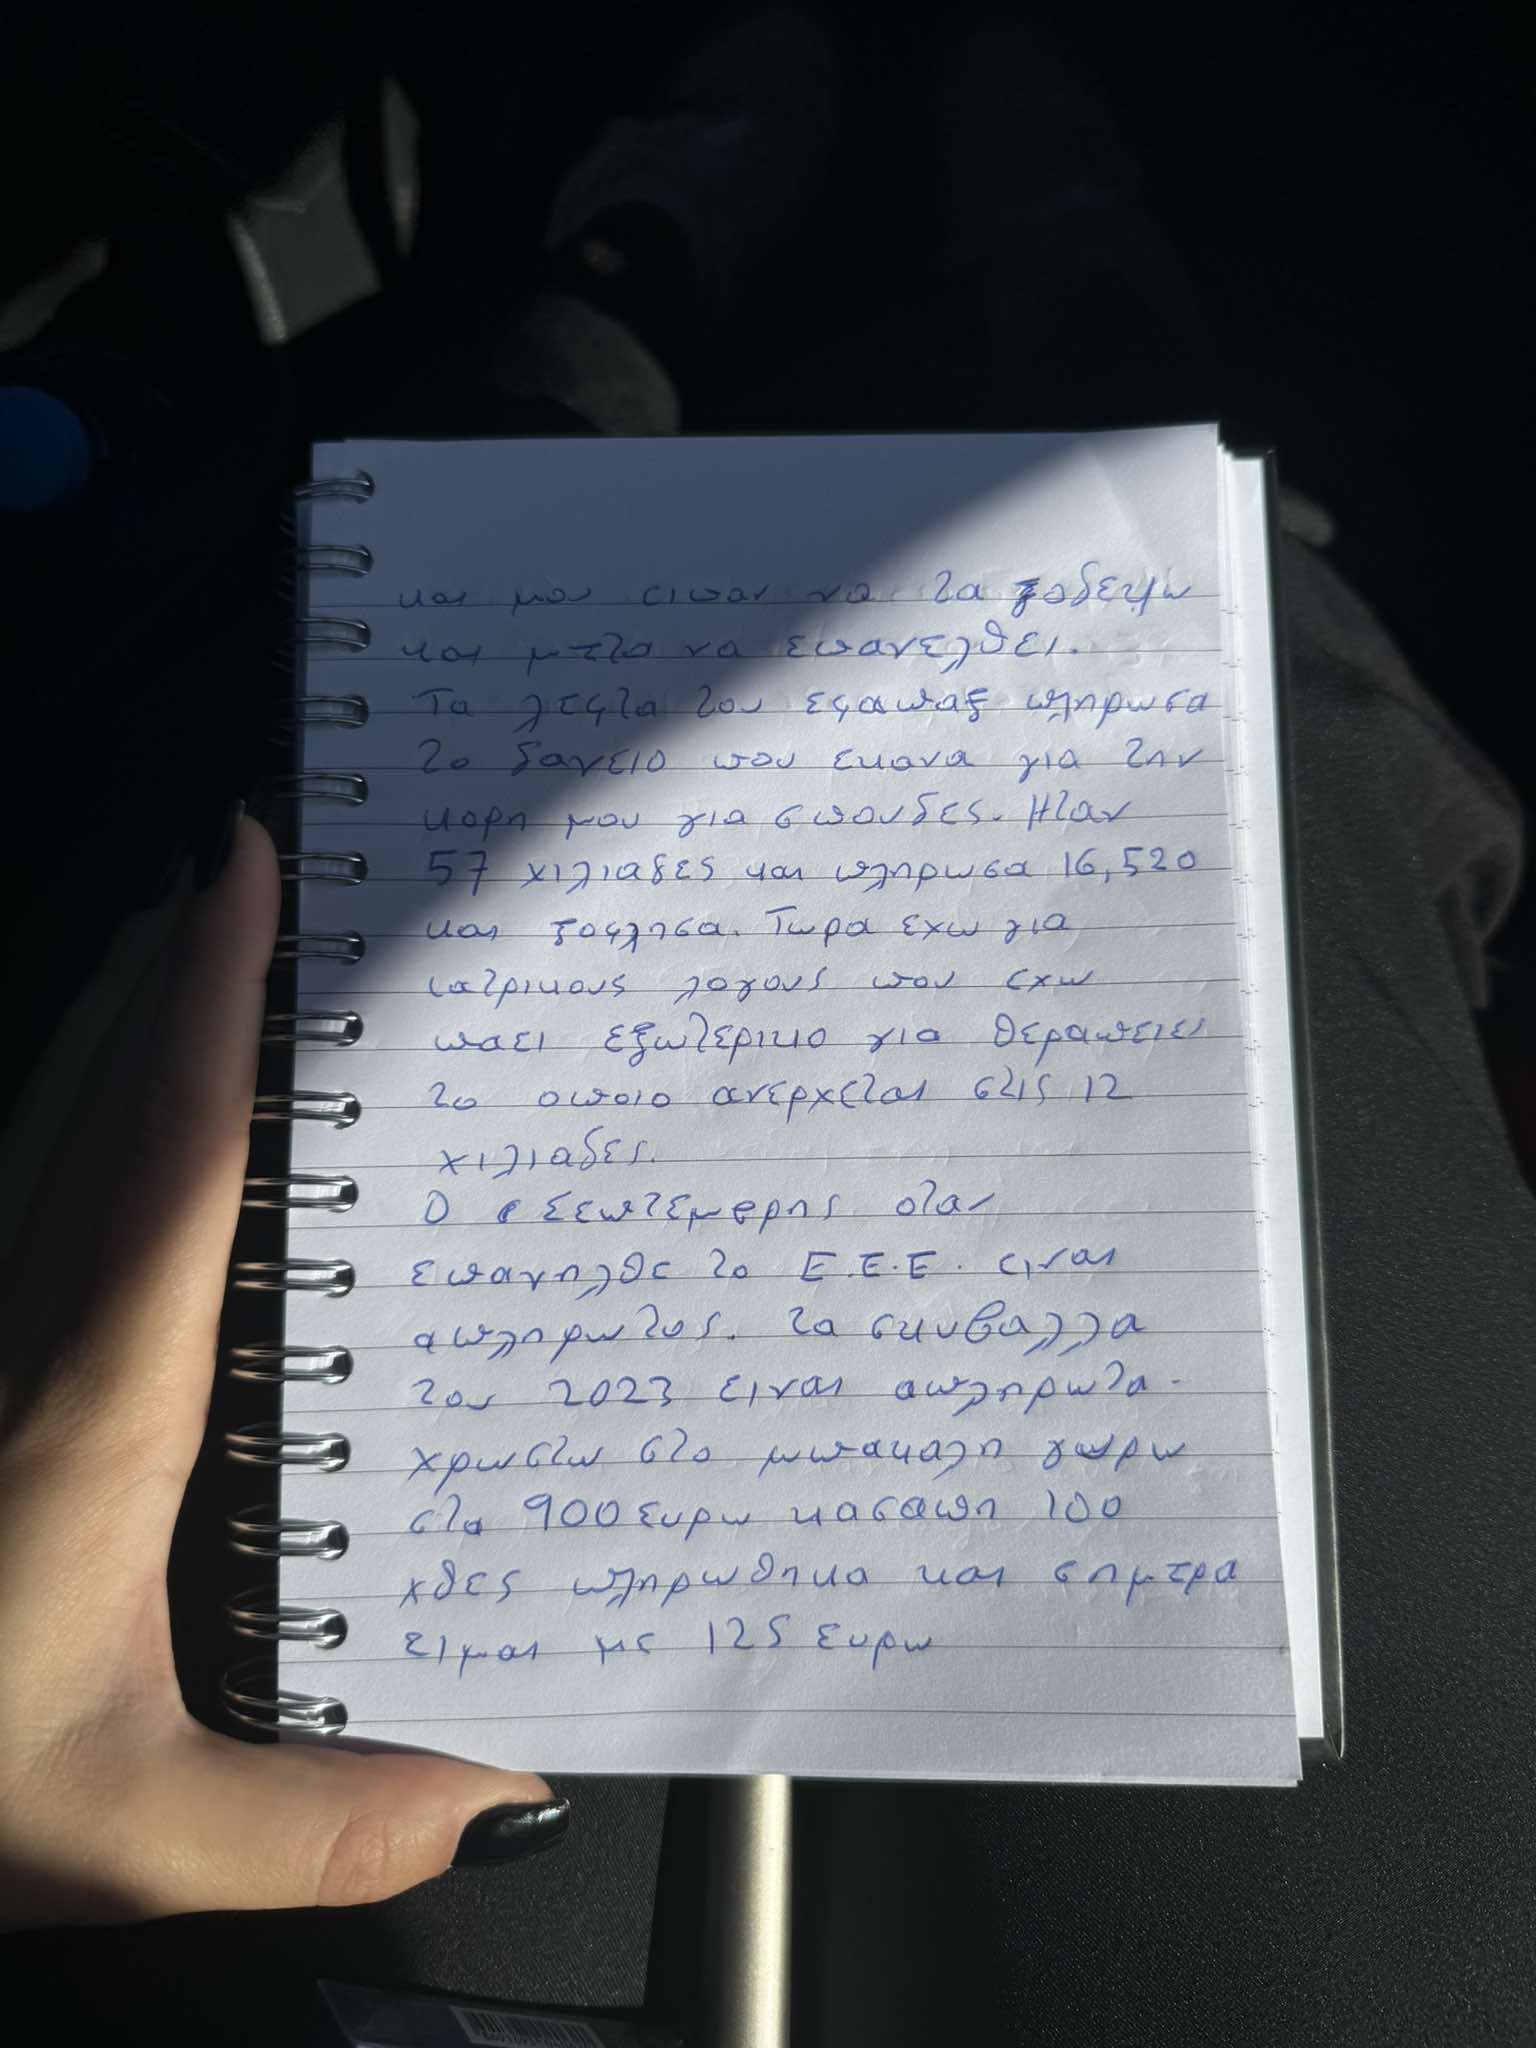 και μου ειπαν να τα ξοδεψω
και μετα να επανελθει.
Τα λεφτα του εφαπαξ πληρωσα
το δανειο που εκανα για την
κορη μου για σπουδες. Ηταν
57 χιλιαδες και πληρωσα 16,520
και ξοφλησα. Τωρα εχω για
ιατρικους λογους που εχω
παει εξωτερικο για θεραπειει
το οποιο ανερχεται στις 12
χιλιαδες.
Ο Σεπτεμβρης οταν
επανηλθε το Ε.Ε.Ε. ειναι
απληρωτος. τα σκυβαλλα
του 2023 ειναι απληρωτα.
χρωστω στο μπακαλη γυρω
στα 900 ευρω κασαπη 100
χθες πληρωθηκα και σημερα
ειμαι με 125 ευρω